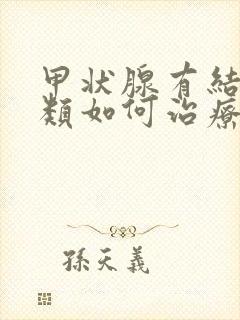 甲状腺有结
類如何治療
孫天義